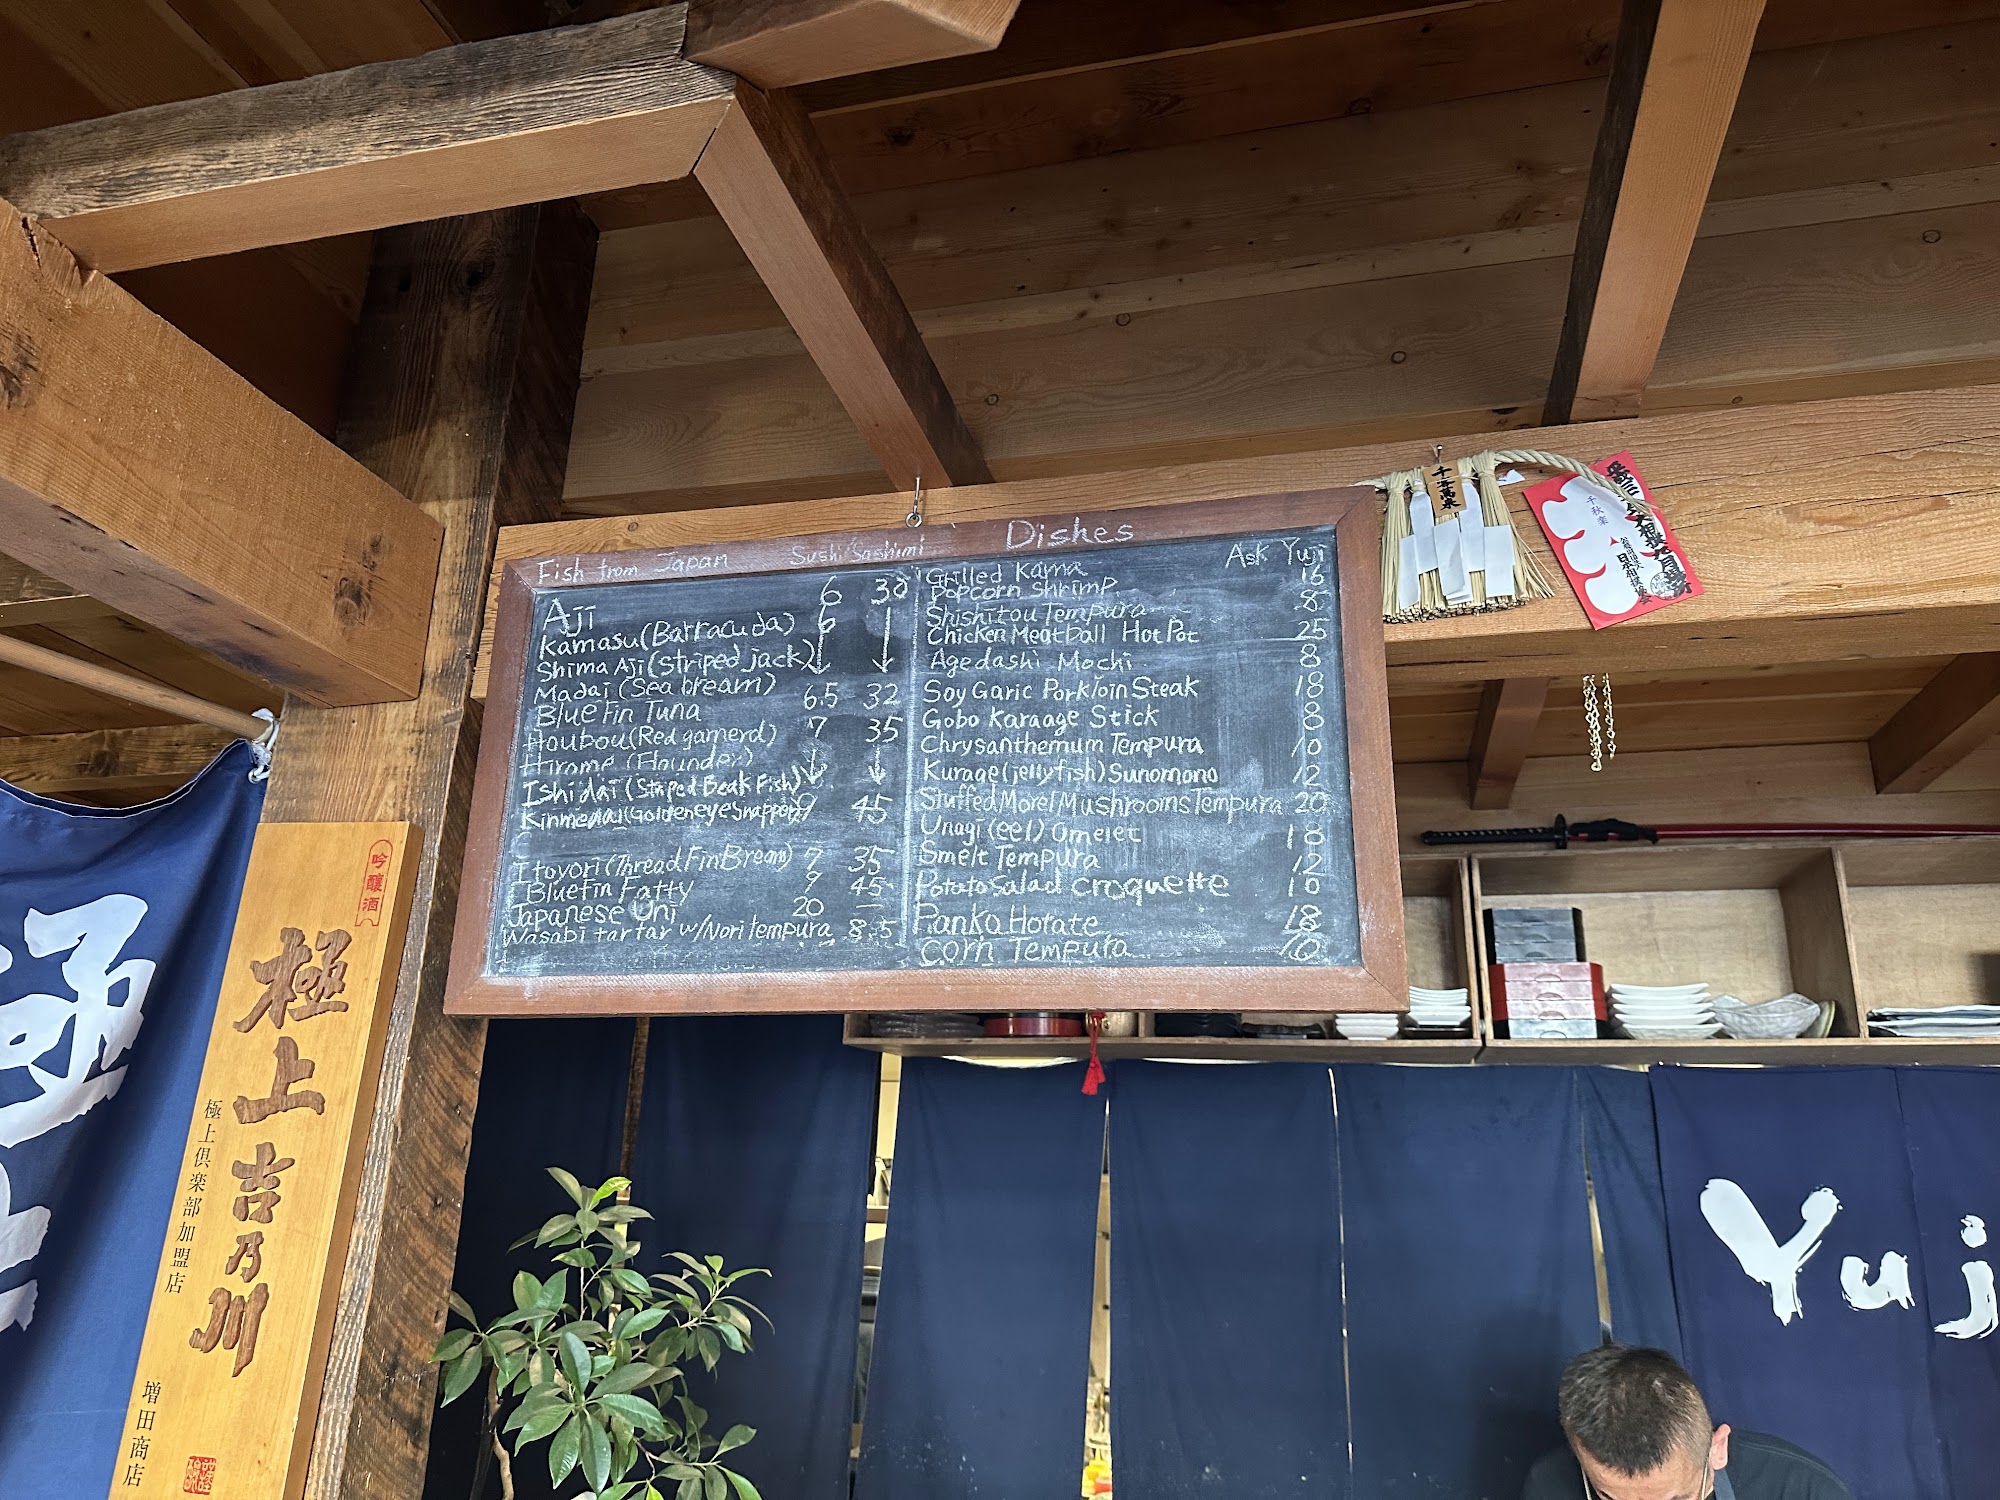 Dishes
Fish from Japan Sushi/Sashimi
Aji 6 30
Kamasu (Barracuda) 6
Shima Aji (striped jack)
Madai (Sea bream) 6.5 32
Blue Fin Tuna 7 35
Houbou (Red garnerd)
Hirame (Flounder)
Ishidai (Striped Beak Fish)
Kinmedai (Goldeneye Snapper) 9 45
Itoyori (Thread Fin Bream) 7 35
Bluefin Fatty 9 45
Japanese Uni 20 —
Wasabi tartar w/Nori tempura 8.5
Grilled Kama Ask Yuji
Popcorn Shrimp 16
Shishitou Tempura 8
Chicken Meatball Hot Pot 25
Agedashi Mochi 8
Soy Garic Porkloin Steak 18
Gobo Karaage Stick 8
Chrysanthemum Tempura 10
Kurage (jellyfish) Sunomono 12
Stuffed Morel Mushrooms Tempura 20
Unagi (eel) Omelet 18
Smelt Tempura 12
Potato Salad Croquette 10
Panko Hotate 18
Corn Tempura 10
千客萬来
千秋楽
吟醸酒
極上吉乃川
極上倶楽部加盟店
増田商店
極上
Yuj